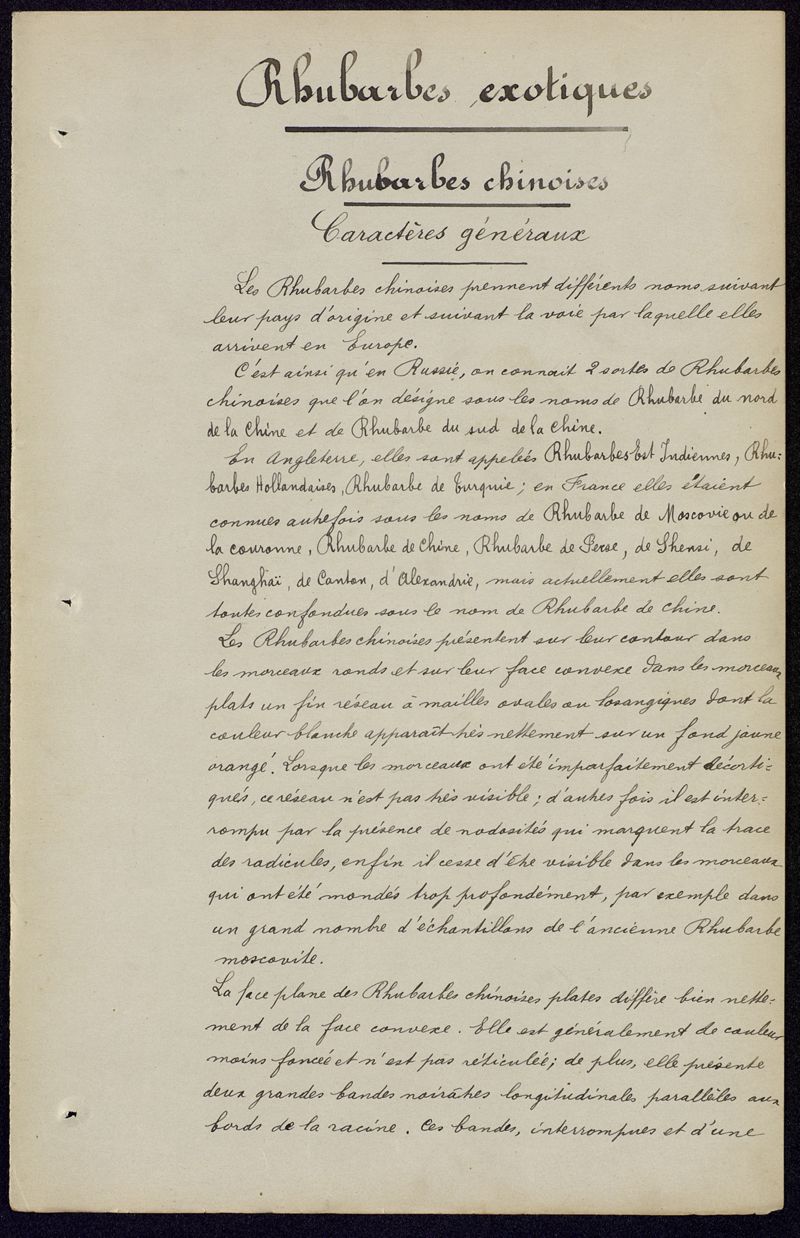 Rhubarbes exotiques
Rhubarbes chinoises
Caractères généraux
Les Rhubarbes chinoises prennent différents noms suivant
leur pays d'origine et suivant la voie par laquelle elles
arrivent en Europe.
C'est ainsi qu'en Russie, on connait 2 sortes de Rhubarbes
chinoises que l'on désigne sous les noms de Rhubarbe du nord
de la Chine et de Rhubarbe du sud de la Chine.
En Angleterre, elles sont appelées Rhubarbes Est Indiennes, Rhu-
barbes Hollandaises, Rhubarbe de Turquie; en France elles étaient
connues autrefois sous les noms de Rhubarbe de Moscovie ou de
la couronne, Rhubarbe de Chine, Rhubarbe de Perse, de Shensi, de
Shanghaï, de Canton, d'Alexandrie, mais actuellement elles sont
toutes confondues sous le nom de Rhubarbe de Chine.
Les Rhubarbes chinoises présentent sur leur contour dans
les morceaux ronds et sur leur face convexe dans les morceaux
plats un fin réseau à mailles ovales ou losangiques dont la
couleur blanche apparaît très nettement sur un fond jaune
orangé. Lorsque les morceaux ont été imparfaitement décorti-
qués, ce réseau n'est pas très visible; d'autres fois il est inter-
rompu par la présence de nodosités qui marquent la trace
des radicules, enfin il cesse d'être visible dans les morceaux
qui ont été mondés trop profondément, par exemple dans
un grand nombre d'échantillons de l'ancienne Rhubarbe
moscovite.
La face plane des Rhubarbes chinoises plates diffère bien nette-
ment de la face convexe. Elle est généralement de couleur
moins foncée et n'est pas réticulée; de plus, elle présente
deux grandes bandes noirâtres longitudinales parallèles aux
bords de la racine. Ces bandes, interrompues et d'une